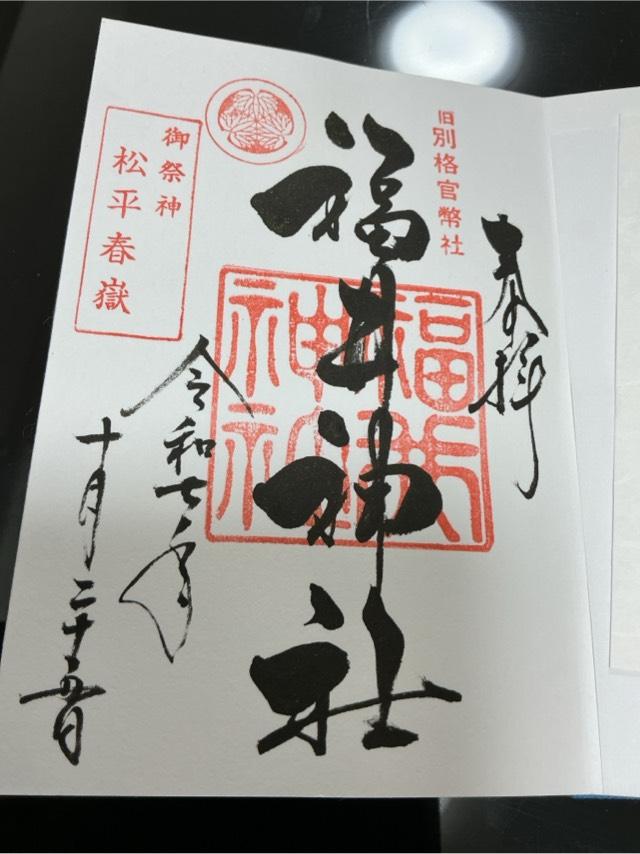 奉拝
旧別格官幣社
福井神社
福井神社
御祭神
松平春嶽
令和七年
十月二十五日